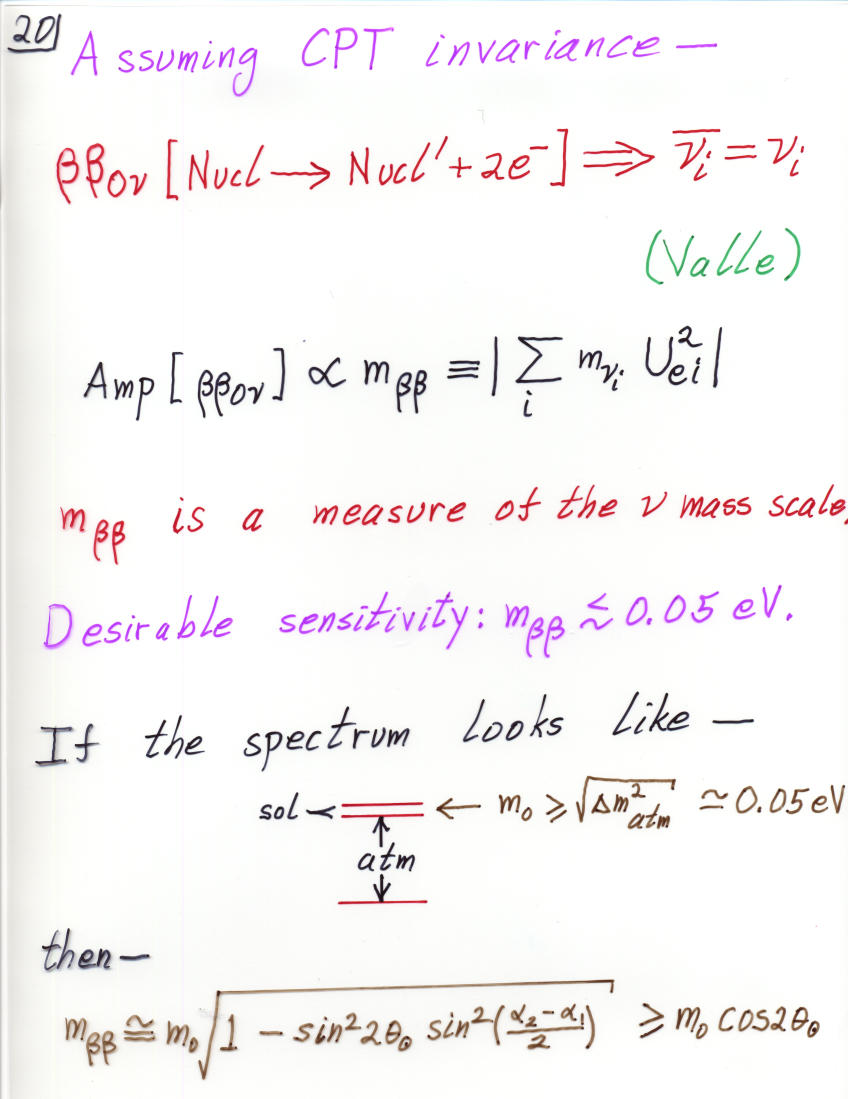 20
Assuming CPT invariance —
ββ0ν [Nucl → Nucl' + 2e⁻] ⟹ ν̅ᵢ = νᵢ
(Valle)
Amp[ββ0ν] ∝ mββ ≡ |∑ᵢ mνᵢ U²ei|
mββ is a measure of the ν mass scale.
Desirable sensitivity: mββ ≲ 0.05 eV.
If the spectrum looks like —
sol ← m₀ ⩾ √Δm²atm ≃ 0.05 eV
atm
then —
mββ ≅ m₀ √1 – sin²2θ⊙ sin²((α₂-α₁)/2) ⩾ m₀ cos2θ⊙